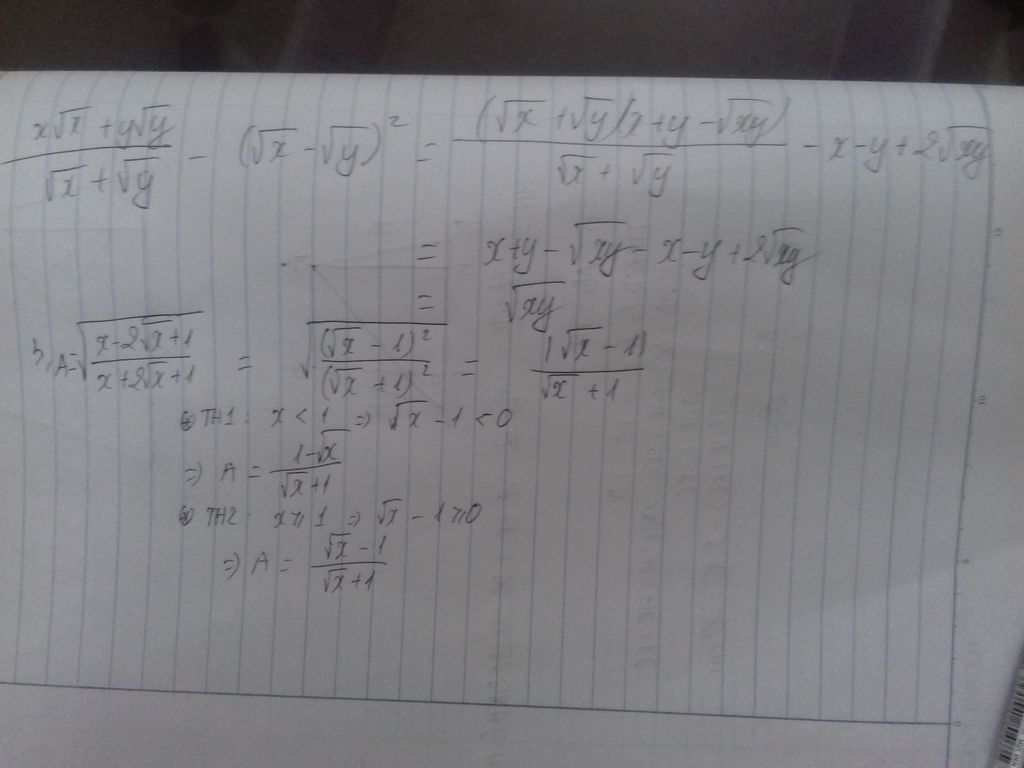 x√x + y√y / √x + √y − (√x − √y)² = (√x + √y)(x + y − √xy) / √x + √y − x − y + 2√xy
= x + y − √xy − x − y + 2√xy
= √xy
b, A = √(x − 2√x + 1 / x + 2√x + 1) = √((√x − 1)² / (√x + 1)²) = |√x − 1| / √x + 1
TH1: x < 1 ⇒ √x − 1 < 0
⇒ A = 1 − √x / √x + 1
TH2: x ≥ 1 ⇒ √x − 1 ≥ 0
⇒ A = √x − 1 / √x + 1